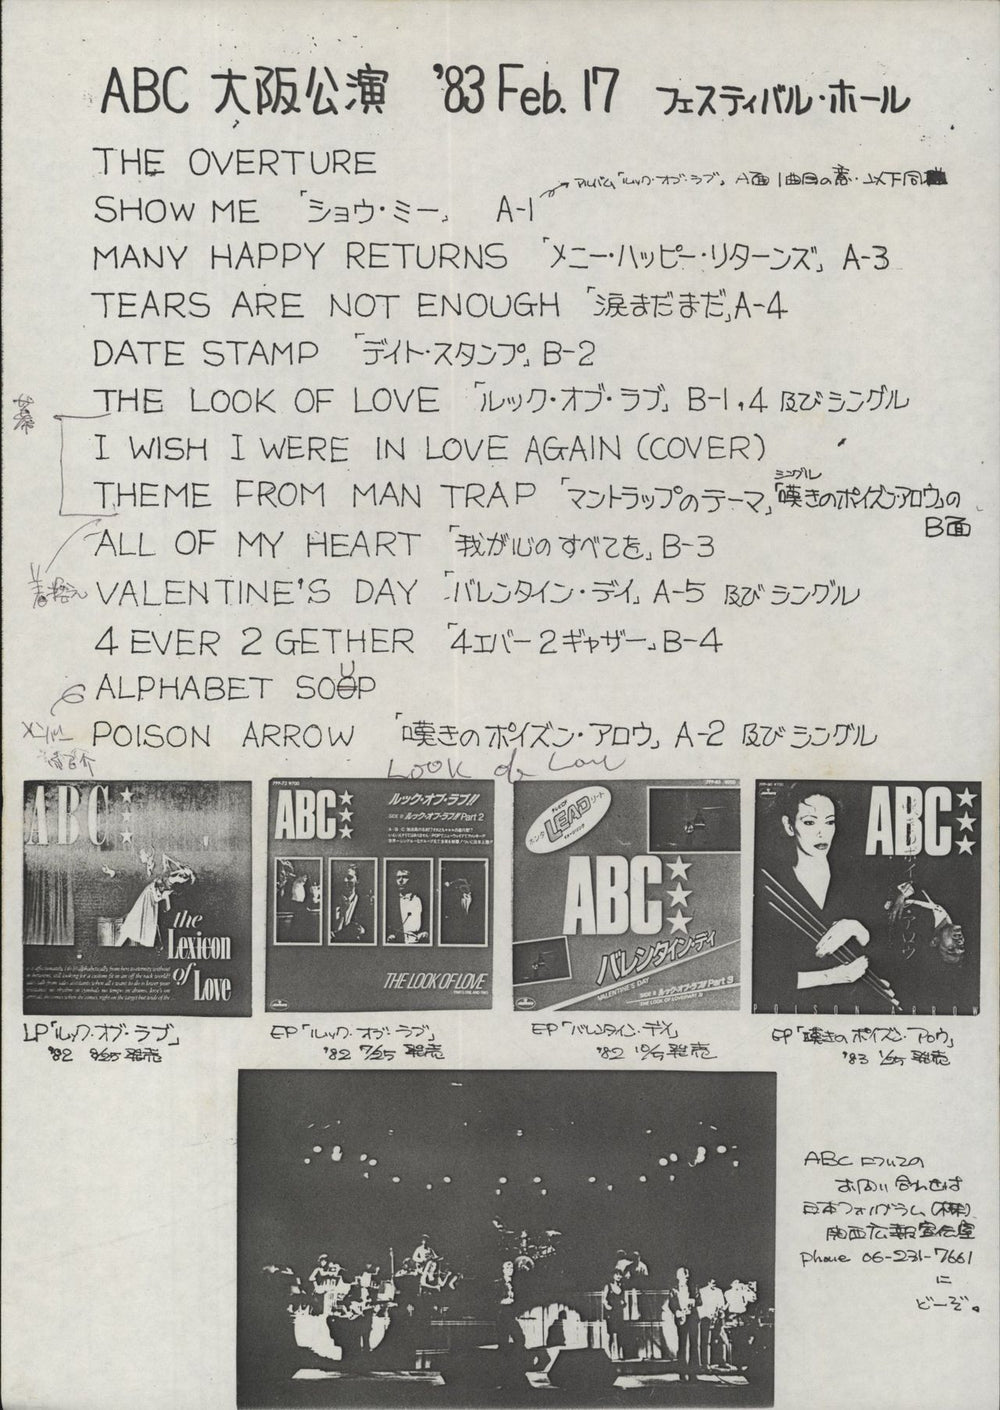 ABC 大阪公演 '83 Feb. 17 フェスティバル・ホール
THE OVERTURE
アルバム「ルック・オブ・ラブ」A面1曲目の意・以下同
SHOW ME 「ショウ・ミー」 A-1
MANY HAPPY RETURNS 「メニー・ハッピー・リターンズ」 A-3
TEARS ARE NOT ENOUGH 「涙まだまだ」A-4
DATE STAMP 「デイト・スタンプ」B-2
THE LOOK OF LOVE 「ルック・オブ・ラブ」 B-1,4 及びシングル
幕
I WISH I WERE IN LOVE AGAIN (COVER)
THEME FROM MAN TRAP 「マントラップのテーマ」シングル「嘆きのポイズン・アロウ」の
B面
ALL OF MY HEART 「我が心のすべてを」B-3
VALENTINE'S DAY 「バレンタイン・デイ」 A-5 及びシングル
4 EVER 2 GETHER 「4エバー2ギャザー」B-4
ALPHABET SOUP
POISON ARROW 「嘆きのポイズン・アロウ」 A-2 及びシングル
メンバー
紹介
Look of Love
ABC
the
Lexicon
of
Love
ABC
ルック・オブ・ラブ!!
SIDE B ルック・オブ・ラブ!! Part 2
THE LOOK OF LOVE
LEAD
ABC
バレンタイン・デイ
VALENTINE'S DAY
SIDE B ルック・オブ・ラブ!! Part 3
ABC
POISON ARROW
LP「ルック・オブ・ラブ」
'82 9/25 発売
EP「ルック・オブ・ラブ」
'82 7/25 発売
EP「バレンタイン・デイ」
'82 10/5 発売
EP「嘆きのポイズン・アロウ」
'83 1/25 発売
ABC についての
お問い合わせは
日本フォノグラム(株)
関西広報宣伝室
Phone 06-231-7661
に
どーぞ。